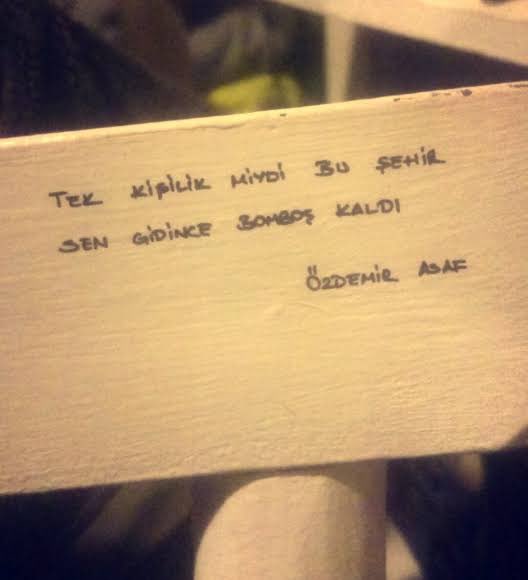 TEK KİŞİLİK MİYDİ BU ŞEHİR
SEN GİDİNCE BOMBOŞ KALDI
ÖZDEMİR ASAF